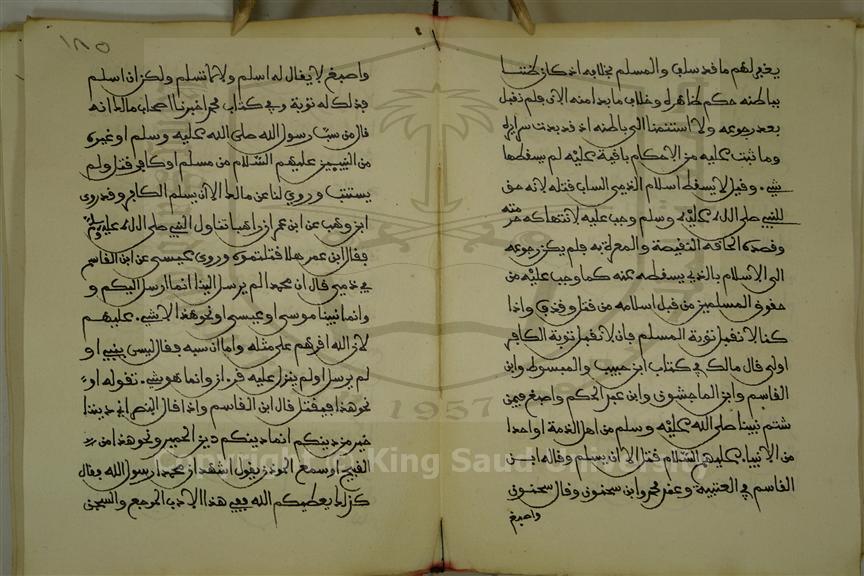 يغفر لهم ما قد سلف والمسلم بخلافه اذ كان ظننا
بباطنه حكم ظاهره وخلاف ما بدا منه الان فلم نقبل
بعد رجوعه ولا استنمنا الى باطنه اذ قد بدت سرايره
وما ثبت عليه من الاحكام باقية عليه لم يسقطها
شيء وقيل لا يسقط اسلام الذمي الساب قتله لانه حق
للنبي صلى الله عليه وسلم وجب عليه لانتهاكه حرمته
وقصده الحاقه النقيصة والمعرة به فلم يكن رجوعه
الى الاسلام بالذي يسقطه عنه كما وجب عليه من
حقوق المسلمين من قبل اسلامه من قتل وقذف واذا
كنا لا نقبل توبة المسلم فان لا نقبل توبة الكافر
اولى قال مالك في كتاب ابن حبيب والمبسوط وابن
القاسم وابن الماجشون وابن عبد الحكم واصبغ فيمن
شتم نبينا صلى الله عليه وسلم من اهل الذمة او احدا
من الانبياء عليهم السلام قتل الا ان يسلم وقاله ابن
القاسم في العتبية وعند محمد وابن سحنون وقال سحنون
واصبغ
١٨٥
واصبغ لا يقال له اسلم ولا لا تسلم ولكن ان اسلم
فذلك له توبة وفي كتاب محمد اخبرنا اصحاب مالك انه
قال من سب رسول الله صلى الله عليه وسلم او غيره
من النبيين عليهم السلام من مسلم او كافر قتل ولم
يستتب وروي لنا عن مالك الا ان يسلم الكافر وقد روى
ابن وهب عن ابن عمر ان راهبا تناول النبي صلى الله عليه وسلم
فقال ابن عمر هلا قتلتموه وروى عيسى عن ابن القاسم
في ذمي قال ان محمدا لم يرسل الينا انما ارسل اليكم و
وانما نبينا موسى او عيسى او نحو هذا لا شيء عليهم
لان الله اقرهم على مثله واما ان سبه فقال ليس بنبي او
لم يرسل او لم ينزل عليه قرءان وانما هو شيء تقوله او
نحو هذا فيقتل قال ابن القاسم واذا قال النصراني ديننا
خير من دينكم انما دينكم دين الحمير ونحو هذا من
القبيح او سمع الموذن يقول اشهد ان محمدا رسول الله فقال
كذلك يعطيكم الله ففي هذا الادب الموجع والسجن
1957
Copyright © King Saud University